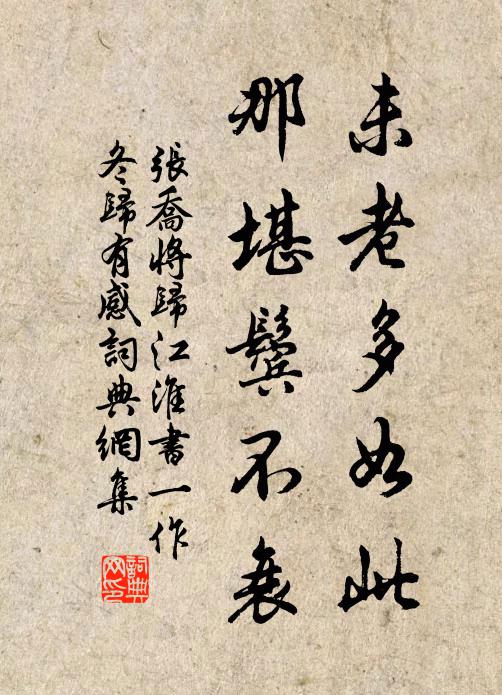 未老多如此
那堪鬢不衰
張喬將歸江淮書一作
冬歸有感詞典網集
詞典網印